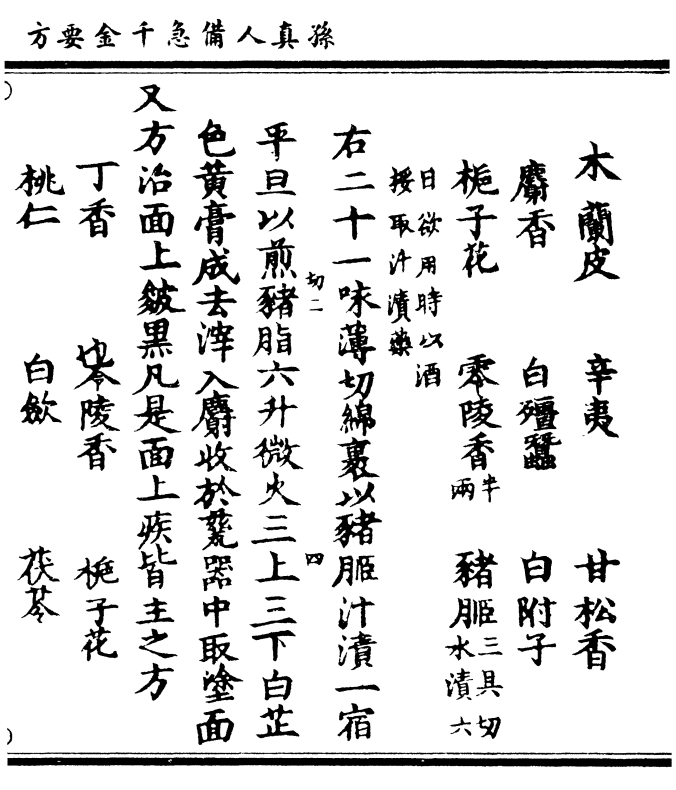 孫真人備急千金要方
木蘭皮 辛夷 甘松香
麝香 白殭蠶 白附子
梔子花 零陵香半兩 豬胰三具切水漬六
日欲用時以酒
挼取汁漬藥
右二十一味薄切綿裹以豬胰汁漬一宿
切二 四
平旦以煎豬脂六升微火三上三下白芷
色黃膏成去滓入麝收於甆器中取塗面
又方治面上皺黑凡是面上疾皆主之方
丁香 也 零陵香 梔子花
桃仁 白歛 茯苓